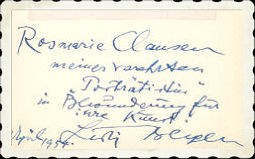 Rosmarie Clausen
meiner verehrten
"Porträtistin"
in Bewunderung für
ihre Kunst
April 1954.